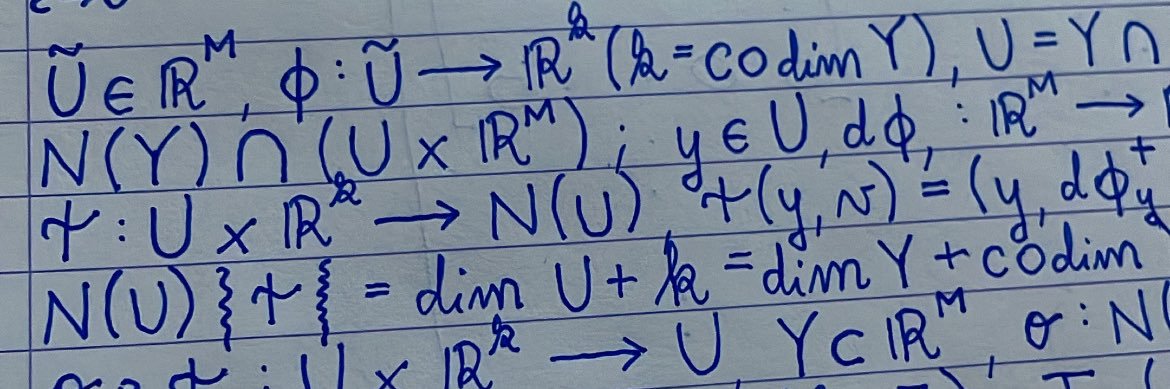 Ũ ∈ ℝᴹ, ϕ : Ũ → ℝᵏ (k = codim Y), U = Y ∩
N(Y) ∩ (U × ℝᴹ) ; y ∈ U, dϕ, : ℝᴹ →
ψ : U × ℝᵏ → N(U) ψ(y, v) = (y, dϕᵗ_y
N(U) { ψ } = dim U + k = dim Y + codim
ψ : U × ℝᵏ → U Y ⊂ ℝᴹ, σ : N(